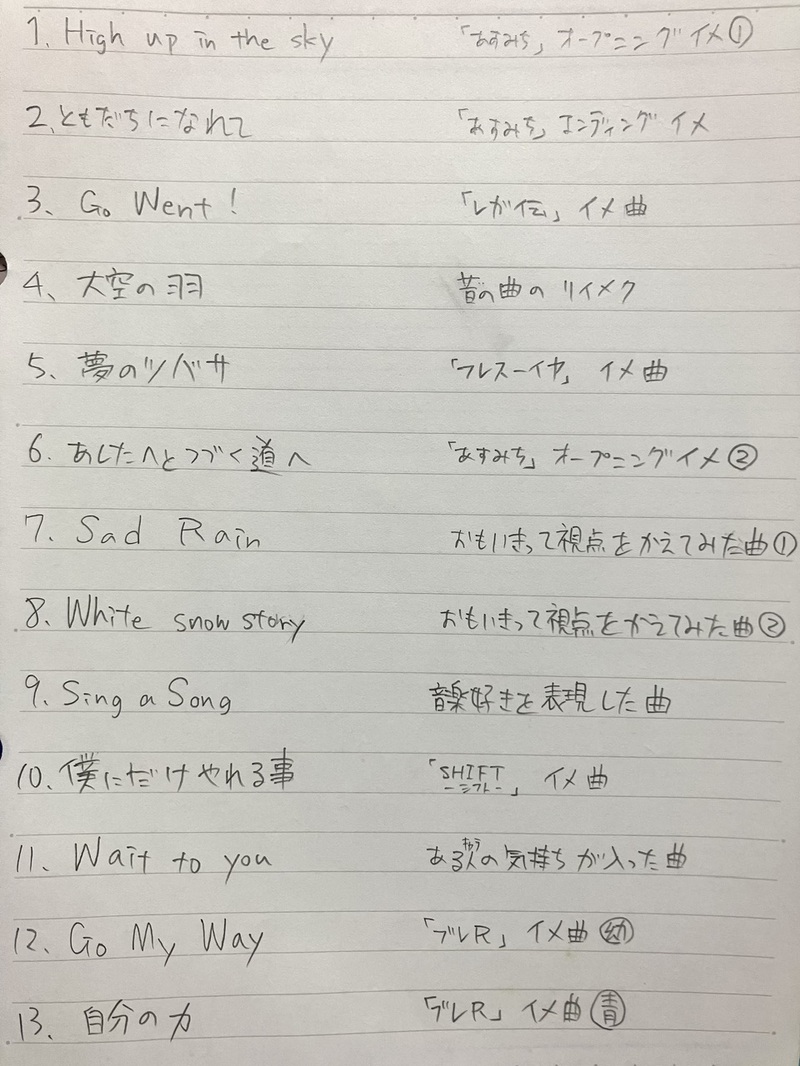 1. High up in the sky 「あすみち」オープニングイメ①
2、ともだちになれて 「あすみち」エンディングイメ
3、Go Went! 「レガ伝」イメ曲
4、大空の羽 昔の曲のリイメク
5、夢のツバサ 「フレスーイヤ」イメ曲
6. あしたへとつづく道へ 「あすみち」オープニングイメ②
7. Sad Rain おもいきって視点をかえてみた曲①
8. White snow story おもいきって視点をかえてみた曲②
9. Sing a Song 音楽好きを表現した曲
10. 僕にだけやれる事 「SHIFT -シフト-」イメ曲
11. Wait to you ある人の気持ちが入った曲
12. Go My Way 「ブレR」イメ曲㊙幼
13. 自分の力 「ブレR」イメ曲 青